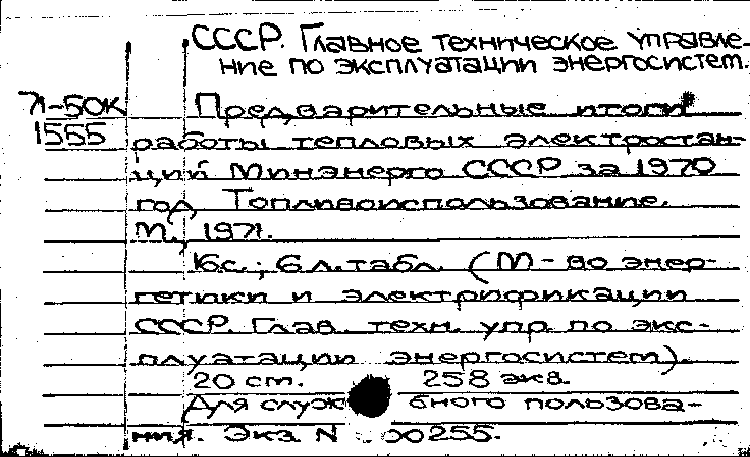 СССР. Главное техническое управле-
ние по эксплуатации энергосистем.
71-50К Предварительные итоги
1555 работы тепловых электростан-
ций Минэнерго СССР за 1970
год. Топливоиспользование.
М., 1971.
16 с.; 6 л. табл. (М-во энер-
гетики и электрификации
СССР. Глав. техн. упр. по экс-
плуатации энергосистем).
20 cm. 258 экз.
Для служебного пользова-
ния. Экз. N 00255.